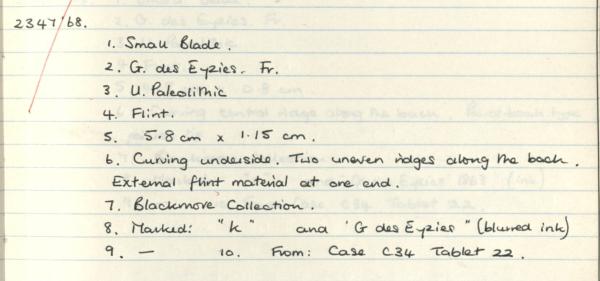 2347'68.
1. Small Blade.
2. G. des Eyzies. Fr.
3. U. Paleolithic
4. Flint.
5. 5.8 cm x 1.15 cm.
6. Curving underside. Two uneven ridges along the back.
External flint material at one end.
7. Blackmore Collection.
8. Marked: "k" and 'G des Eyzies" (blurred ink)
9. — 10. From: Case C34 Tablet 22.